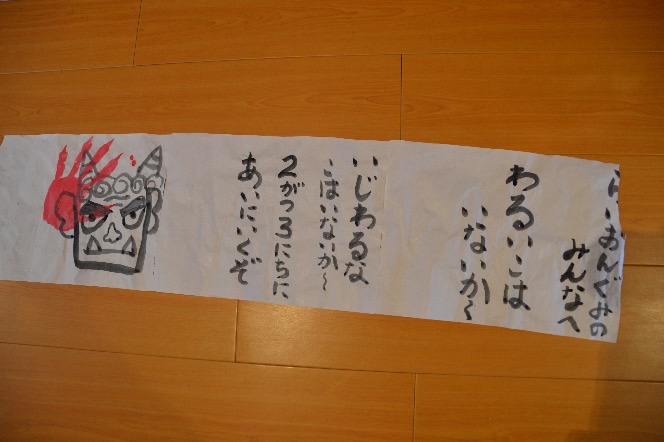 らいおんぐみの
みんなへ
わるいこは
いないか〜
いじわるな
こはいないか〜
2がつ3にちに
あいにいくぞ